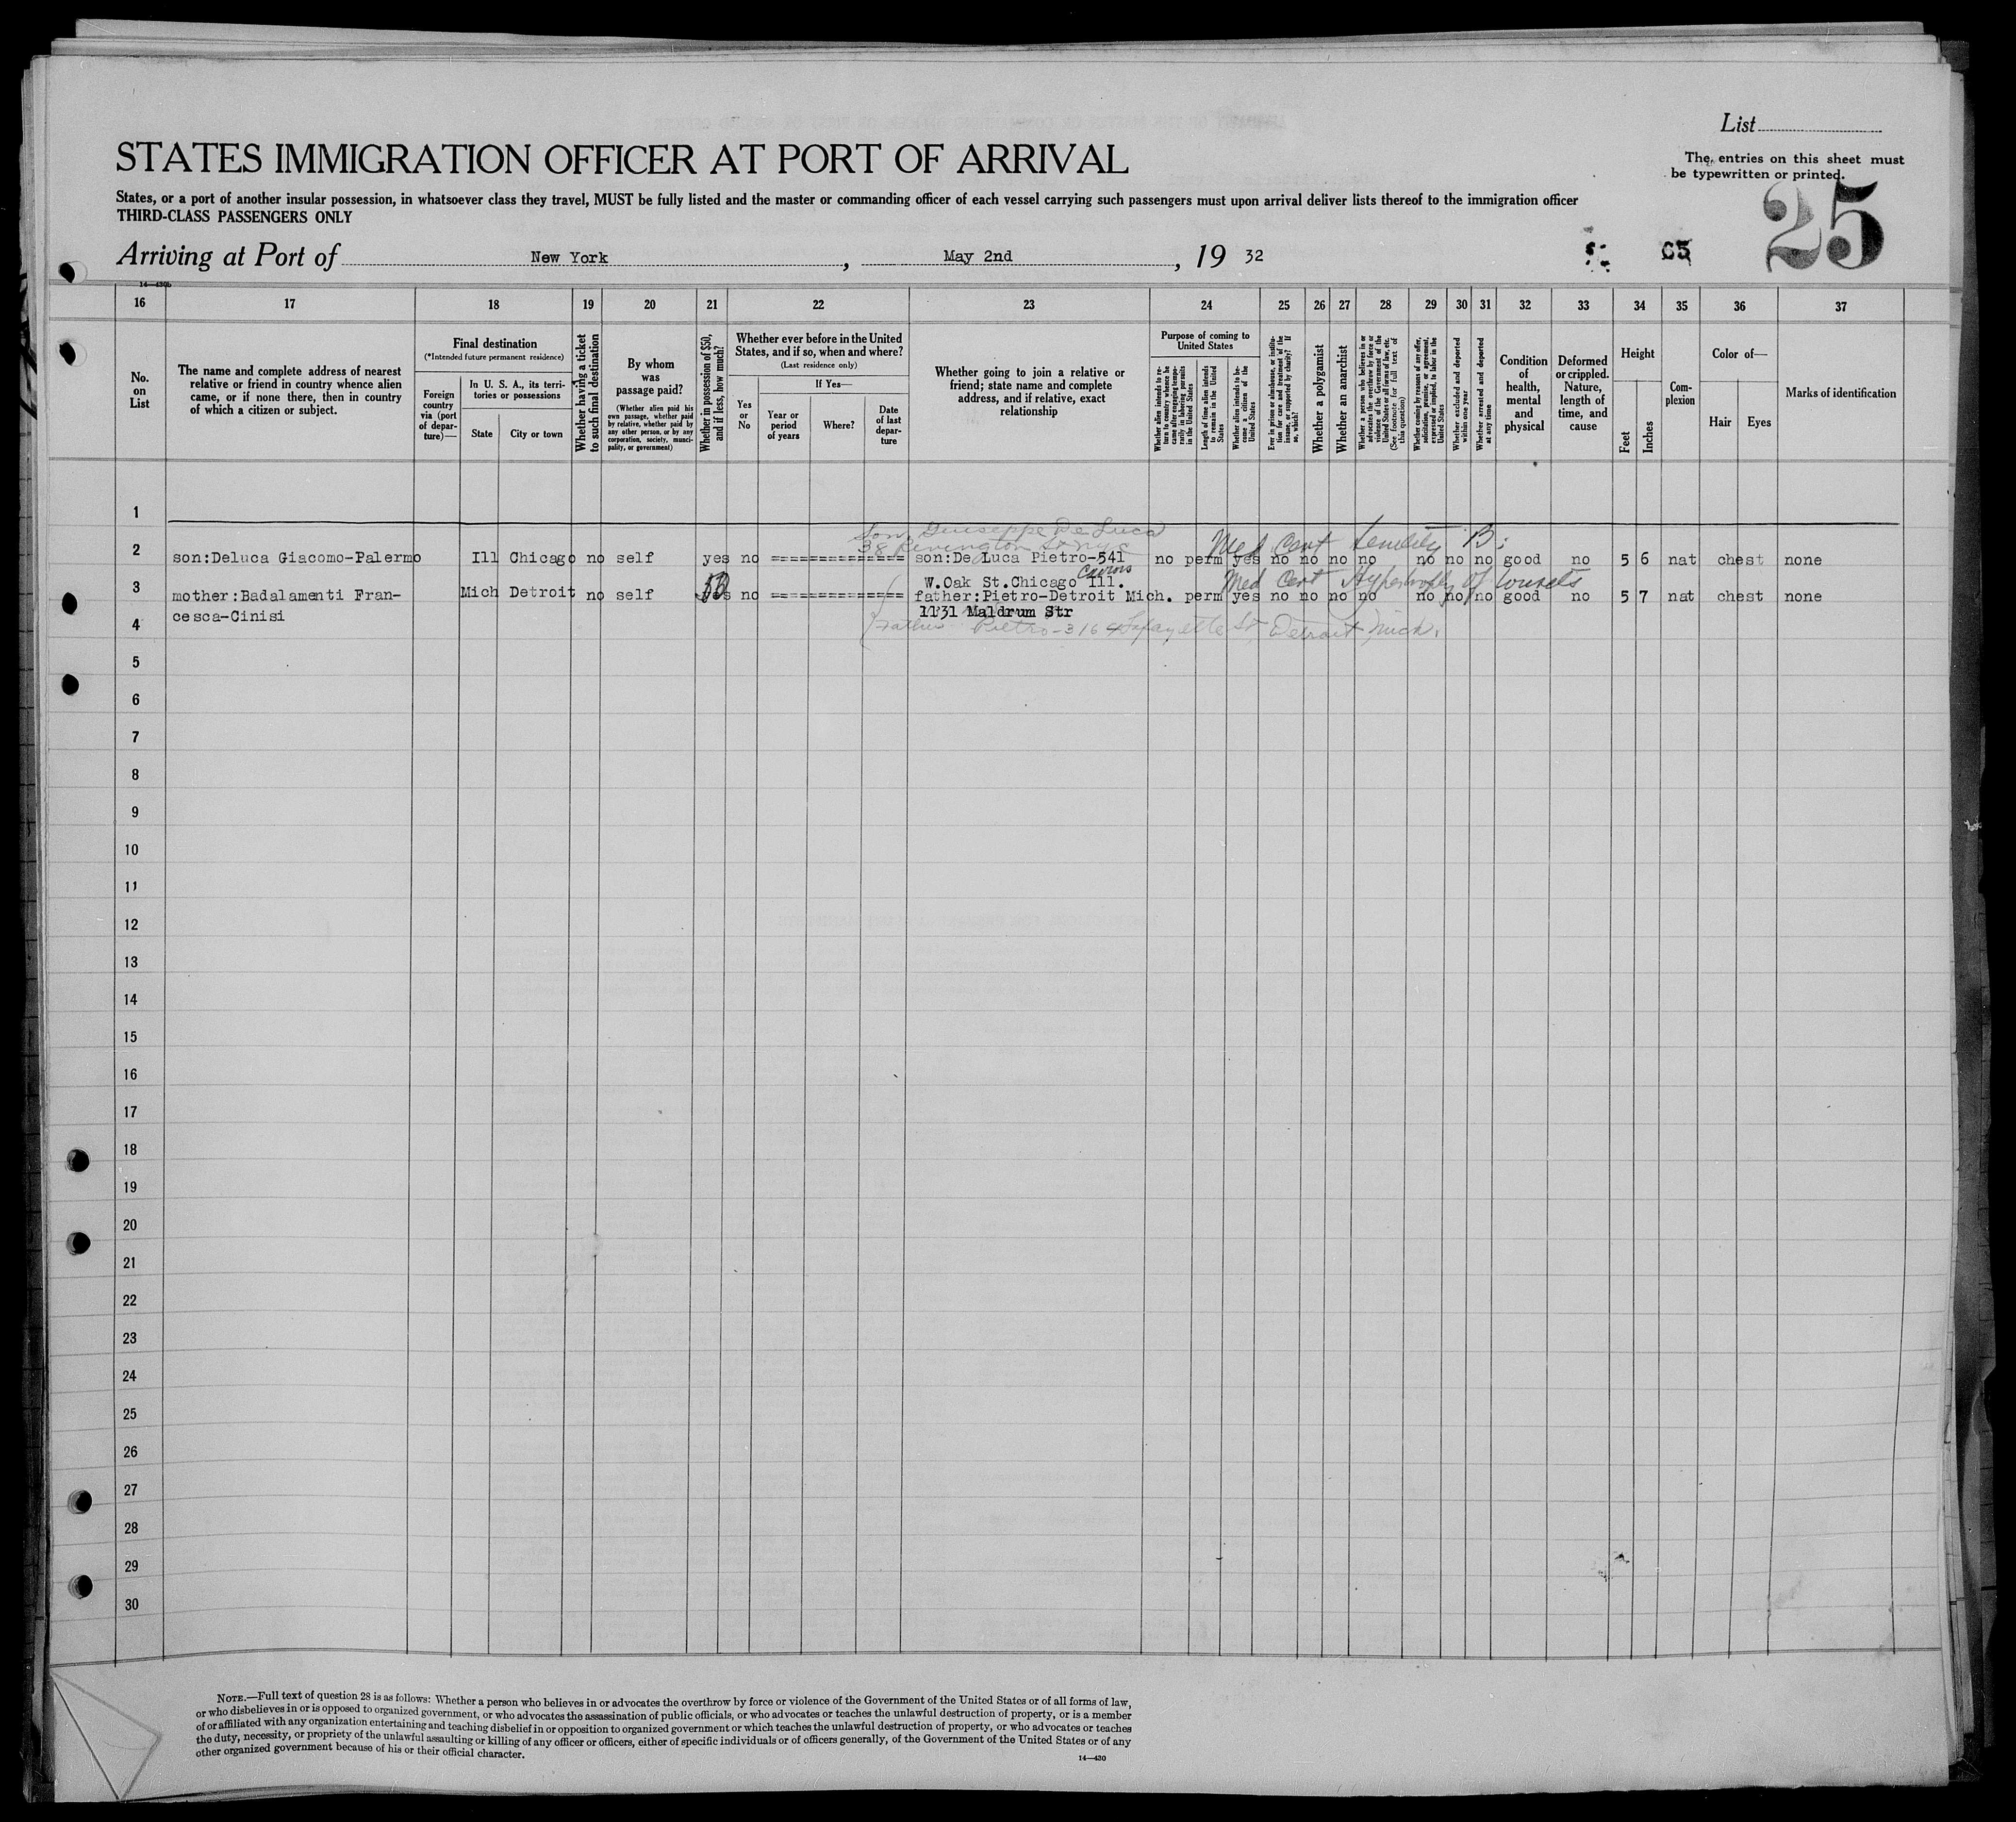 List
The entries on this sheet must
be typewritten or printed.
STATES IMMIGRATION OFFICER AT PORT OF ARRIVAL
25
States, or a port of another insular possession, in whatsoever class they travel, MUST be fully listed and the master or commanding officer of each vessel carrying such passengers must upon arrival deliver lists thereof to the immigration officer
THIRD-CLASS PASSENGERS ONLY
Arriving at Port of New York, May 2nd, 19 32
14—430b
16 17 18 19 20 21 22 23 24 25 26 27 28 29 30 31 32 33 34 35 36 37
No.
on
List
The name and complete address of nearest
relative or friend in country whence alien
came, or if none there, then in country
of which a citizen or subject.
Final destination
(*Intended future permanent residence)
Foreign
country
via (port
of depar-
ture)—
In U. S. A., its terri-
tories or possessions
State
City or town
Whether having a ticket
to such final destination
By whom
was
passage paid?
(Whether alien paid his
own passage, whether paid
by relative, whether paid by
any other person, or by any
corporation, society, munci-
pality, or government)
Whether in possession of $50,
and if less, how much?
Whether ever before in the United
States, and if so, when and where?
(Last residence only)
If Yes—
Yes
or
No
Year or
period
of years
Where?
Date
of last
depar-
ture
Whether going to join a relative or
friend; state name and complete
address, and if relative, exact
relationship
Purpose of coming to
United States
Whether alien intends to re-
turn to country whence he
came after engaging tempo-
rarily in laboring pursuits
in the United States
Length of time alien intends
to remain in the United
States
Whether alien intends to be-
come a citizen of the
United States
Ever in prison or almshouse, or institu-
tion for care and treatment of the
insane, or supported by charity? If
so, which?
Whether a polygamist
Whether an anarchist
Whether a person who believes in or
advocates the overthrow by force or
violence of the Government of the
United States or all forms of law, etc.
(See footnote for full text of
this question)
Whether coming by reasons of any offer,
solicitation, promise, or agreement,
expressed or implied, to labor in the
United States
Whether excluded and deported
within one year
Whether arrested and deported
at any time
Condition
of
health,
mental
and
physical
Deformed
or crippled.
Nature,
length of
time, and
cause
Height
Feet
Inches
Com-
plexion
Color of—
Hair
Eyes
Marks of identification
1
Son, Giuseppe De Luca
38 Rivington St NYC
Med Cert Senility B:
2 son:Deluca Giacomo-Palermo Ill Chicago no self yes no ============== son:De Luca Pietro-541 no perm yes no no no no no no no good no 5 6 nat chest none
W.Oak St.Chicago Ill.
Med Cert Hypertrophy of tonsils
3 mother:Badalamenti Fran- Mich Detroit no self yes no ============== father:Pietro-Detroit Mich. perm yes no no no no no no no good no 5 7 nat chest none
cesca-Cinisi
1131 Maldrum Str
4 Father Pietro-3164 Lafayette St Detroit Mich.
5
6
7
8
9
10
11
12
13
14
15
16
17
18
19
20
21
22
23
24
25
26
27
28
29
30
NOTE.—Full text of question 28 is as follows: Whether a person who believes in or advocates the overthrow by force or violence of the Government of the United States or of all forms of law,
or who disbelieves in or is opposed to organized government, or who advocates the assassination of public officials, or who advocates or teaches the unlawful destruction of property, or is a member
of or affiliated with any organization entertaining and teaching disbelief in or opposition to organized government or which teaches the unlawful destruction of property, or who advocates or teaches
the duty, necessity, or propriety of the unlawful assaulting or killing of any officer or officers, either of specific individuals or of officers generally, of the Government of the United States or of any
other organized government because of his or their official character.
14—430